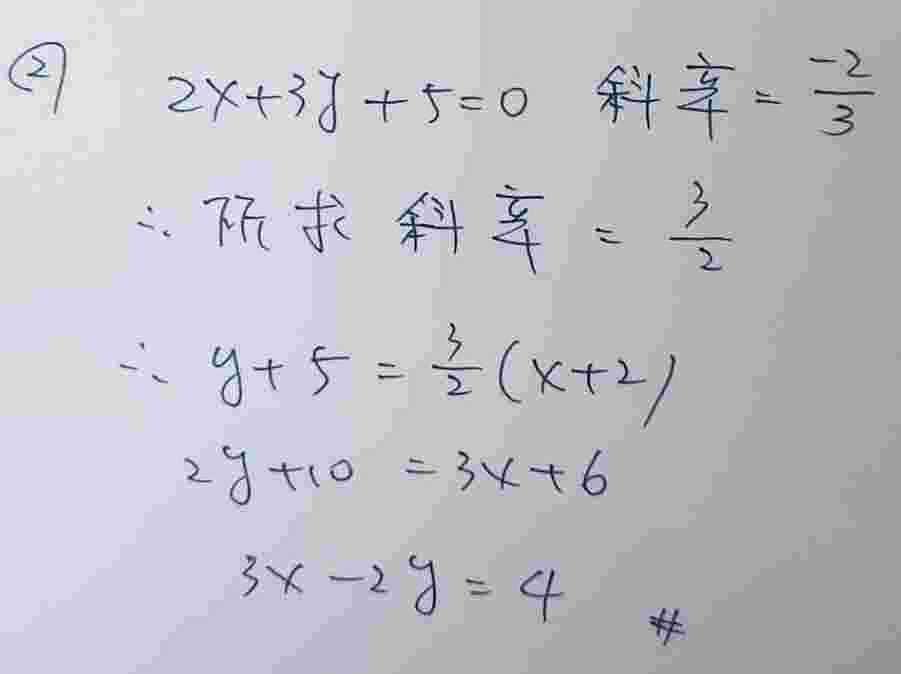 ② 2x+3y+5=0 斜率=-2/3
∴ 所求斜率 = 3/2
∴ y+5 = 3/2(x+2)
2y+10 = 3x+6
3x-2y=4 #